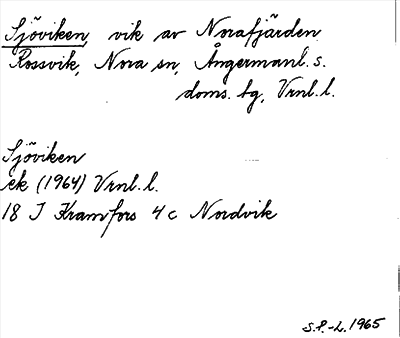 Sjöviken, vik av Norafjärden,
Rossvik, Nora sn, Ångermanl. s.
doms. bg, Vrnl. l.
Sjöviken
ek (1964) Vrnl. l.
18 I Kramfors 4 c Nordvik
S.P.-L. 1965